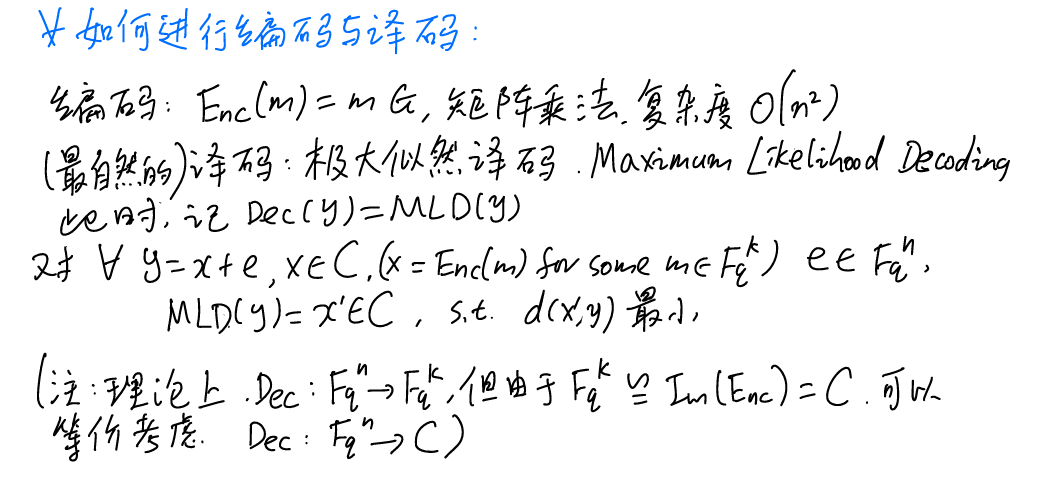 ∀ 如何进行编码与译码：
编码：Enc(m) = m G, 矩阵乘法. 复杂度 O(n²)
(最自然的)译码：极大似然译码. Maximum Likelihood Decoding
此时, 记 Dec(y) = MLD(y)
对 ∀ y = x + e, x ∈ C, (x = Enc(m) for some m ∈ F_q^k) e ∈ F_q^n,
MLD(y) = x' ∈ C, s.t. d(x', y) 最小,
(注：理论上. Dec : F_q^n → F_q^k, 但由于 F_q^k ≌ Im(Enc) = C. 可以
等价考虑. Dec : F_q^n → C)